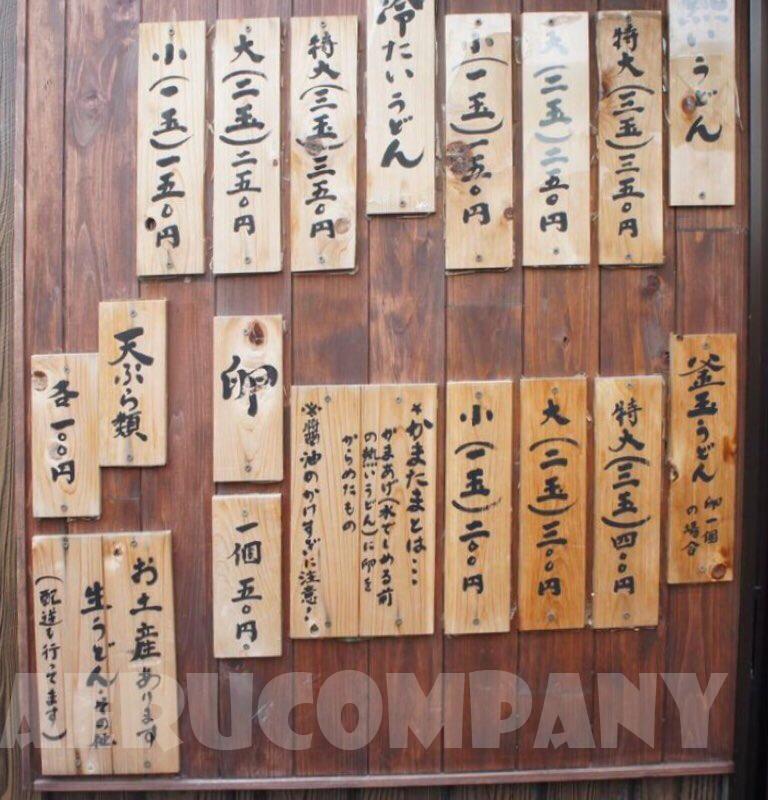 熱いうどん
特大(三玉)三五〇円
大(二玉)二五〇円
小(一玉)一五〇円
冷たいうどん
特大(三玉)三五〇円
大(二玉)二五〇円
小(一玉)一五〇円
釜玉うどん
卵一個
の場合
特大(三玉)四〇〇円
大(二玉)三〇〇円
小(一玉)二〇〇円
*かまたまとは…
かまあげ(水でしめる前
の熱いうどん)に卵を
からめたもの
※醤油のかけすぎに注意!!
卵
一個 五〇円
天ぷら類
各一〇〇円
お土産あります
生うどん・その他
(配送も行ってます)
AHRUCOMPANY